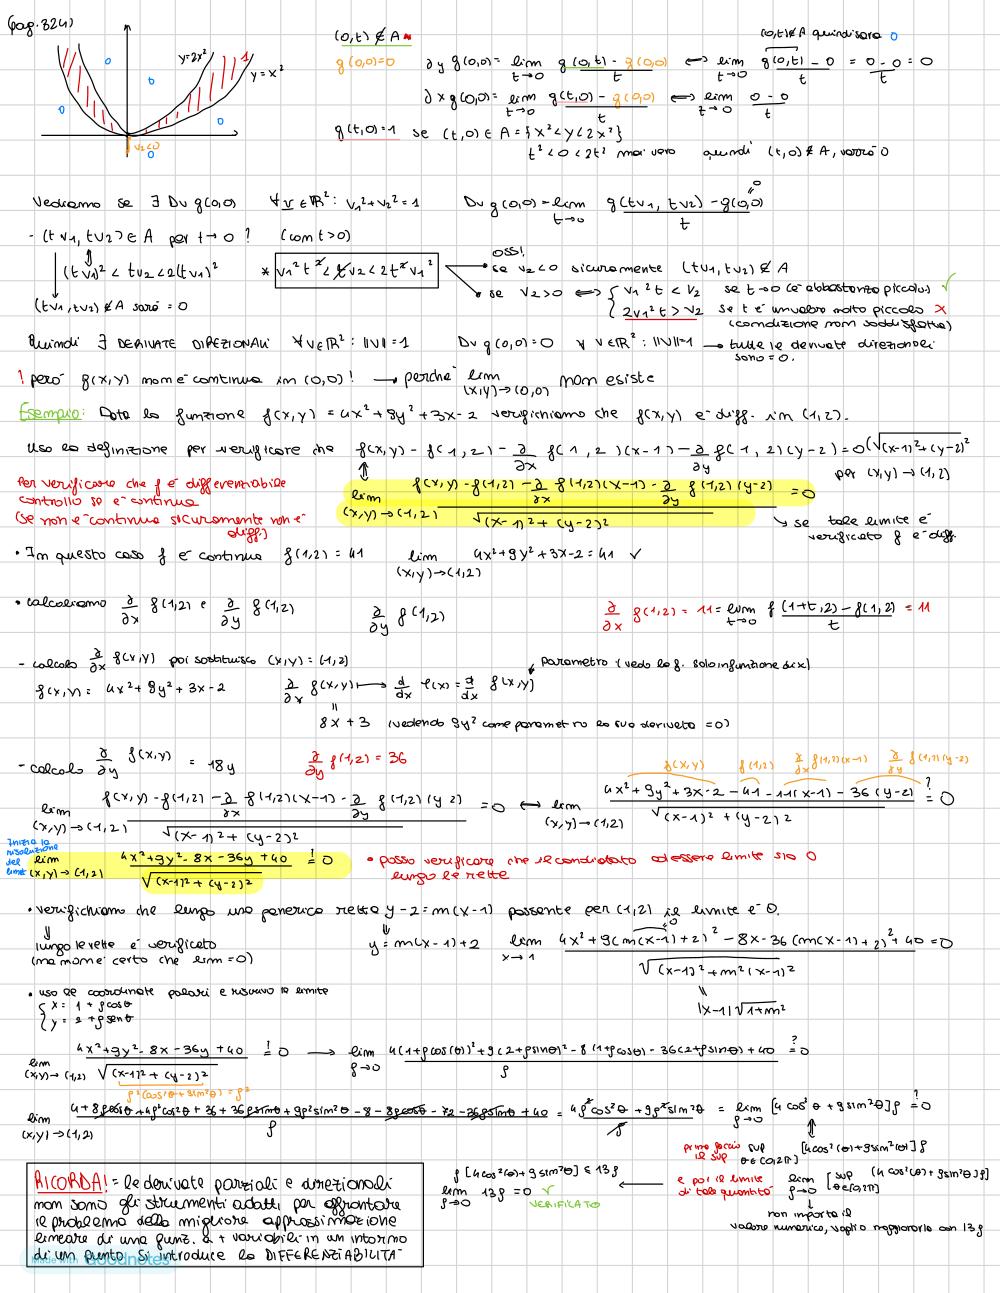 (pag. 324)
y=2x²
1
y=x²
0
0
0
0
v₂<0
0
(0,t) ∉ A
g(0,0)=0
(0,t)∉A quindi sarà 0
∂y g(0,0) = lim t→0 g(0,t) - g(0,0) / t ⟺ lim t→0 g(0,t) - 0 / t = 0-0 / t = 0
∂x g(0,0) = lim t→0 g(t,0) - g(0,0) / t ⟺ lim t→0 0-0 / t
g(t,0)=1 se (t,0) ∈ A = {x²<y<2x²}
t²<0<2t² mai vero quindi (t,0)∉A, varrà 0
Vediamo se ∃ Dv g(0,0) ∀ v ∈ ℝ²: v₁²+v₂²=1 Dv g(0,0) = lim t→0 g(tv₁, tv₂) - g(0,0) / t
=0
- (tv₁, tv₂) ∈ A per t→0 ? (con t>0)
(tv₁)² < tv₂ < 2(tv₁)² * v₁²t² < tv₂ < 2t²v₁²
oss!
se v₂<0 sicuramente (tv₁,tv₂) ∉ A
se v₂>0 ⟺ { v₁²t < v₂ se t→0 (è abbastanza piccolo) ✓
2v₁²t > v₂ se t è un valore molto piccolo ✗
(condizione non soddisfatta)
(tv₁,tv₂) ∉ A sarà = 0
Quindi ∃ DERIVATE DIREZIONALI ∀ v∈ℝ²: ||v||=1 Dv g(0,0)=0 ∀ v∈ℝ²: ||v||=1 → tutte le derivate direzionali
sono = 0.
! però g(x,y) non è continua in (0,0)! → perché lim (x,y)→(0,0) non esiste
Esempio: Data la funzione f(x,y) = 4x²+9y²+3x-2 verifichiamo che f(x,y) è diff. in (1,2).
Uso la definizione per verificare che f(x,y) - f(1,2) - ∂/∂x f(1,2)(x-1) - ∂/∂y f(1,2)(y-2) = o(√(x-1)²+(y-2)²
per (x,y)→(1,2)
Per verificare che f è differentiabile
controllo se è continua
(se non è continua sicuramente non è
diff.)
lim (x,y)→(1,2) f(x,y) - f(1,2) - ∂/∂x f(1,2)(x-1) - ∂/∂y f(1,2)(y-2) / √(x-1)²+(y-2)² = 0
↘ se tale limite è
verificato f è diff.
• In questo caso f è continua f(1,2) = 41 lim (x,y)→(1,2) 4x²+9y²+3x-2=41 ✓
• calcoliamo ∂/∂x f(1,2) e ∂/∂y f(1,2) ∂/∂y f(1,2) ∂/∂x f(1,2) = 11 = lim t→0 f(1+t,2) - f(1,2) / t = 11
- calcolo ∂/∂x f(x,y) poi sostituisco (x,y)=(1,2)
parametro (vedo la f. solo in funzione di x)
f(x,y) = 4x²+9y²+3x-2 ∂/∂x f(x,y) ⟼ d/dx f(x) = d/dx f(x,y)
=
8x+3 (vedendo 9y² come parametro la sua derivata = 0)
- calcolo ∂/∂y f(x,y) = 18y ∂/∂y f(1,2) = 36
f(x,y) f(1,2) ∂/∂x f(1,2)(x-1) ∂/∂y f(1,2)(y-2)
lim (x,y)→(1,2) f(x,y) - f(1,2) - ∂/∂x f(1,2)(x-1) - ∂/∂y f(1,2)(y-2) / √(x-1)²+(y-2)² = 0 ⟷ lim (x,y)→(1,2) 4x²+9y²+3x-2-41-11(x-1)-36(y-2) / √(x-1)²+(y-2)² =? 0
Inizia la
risoluzione
del
limite
lim (x,y)→(1,2) 4x²+9y²-8x-36y+40 / √(x-1)²+(y-2)² =? 0
• posso verificare che il candidato ad essere limite sia 0
lungo le rette
• verifichiamo che lungo una generica retta y-2=m(x-1) passante per (1,2) il limite è 0.
⇓
lungo le rette è verificato
(ma non è certo che lim=0)
⇓
y = m(x-1)+2 lim x→1 4x²+9(m(x-1)+2)²-8x-36(m(x-1)+2)+40 / √(x-1)²+m²(x-1)² = 0
→0
=
|x-1|√1+m²
• uso le coordinate polari e riscrivo il limite
{ x = 1+ρcosθ
y = 2+ρsenθ
lim (x,y)→(1,2) 4x²+9y²-8x-36y+40 / √(x-1)²+(y-2)² =? 0 → lim ρ→0 4(1+ρcos(θ))²+9(2+ρsinθ)²-8(1+ρcosθ)-36(2+ρsinθ)+40 / ρ =? 0
ρ²(cos²θ+sin²θ)=ρ²
lim (x,y)→(1,2) 4+8ρcosθ+4ρ²cos²θ+36+36ρsinθ+9ρ²sin²θ-8-8ρcosθ-72-36ρsinθ+40 / ρ = 4ρ²cos²θ+9ρ²sin²θ / ρ = lim ρ→0 [4cos²θ+9sin²θ]ρ =? 0
⇕
primo faccio
il sup
sup θ∈[0,2π] [4cos²(θ)+9sin²(θ)]ρ
e poi il limite
di tale quantità
lim ρ→0 [sup θ∈[0,2π] (4cos²(θ)+9sin²θ)ρ]
non importa il
valore numerico, voglio maggiorarlo con 13ρ
ρ[4cos²(θ)+9sin²θ] ≤ 13ρ
lim ρ→0 13ρ = 0 ✓
VERIFICATO
RICORDA! = le derivate parziali e direzionali
non sono gli strumenti adatti per affrontare
il problema della migliore approssimazione
lineare di una funz. a + variabili in un intorno
di un punto. Si introduce la DIFFERENZIABILITÀ
Made with Goodnotes